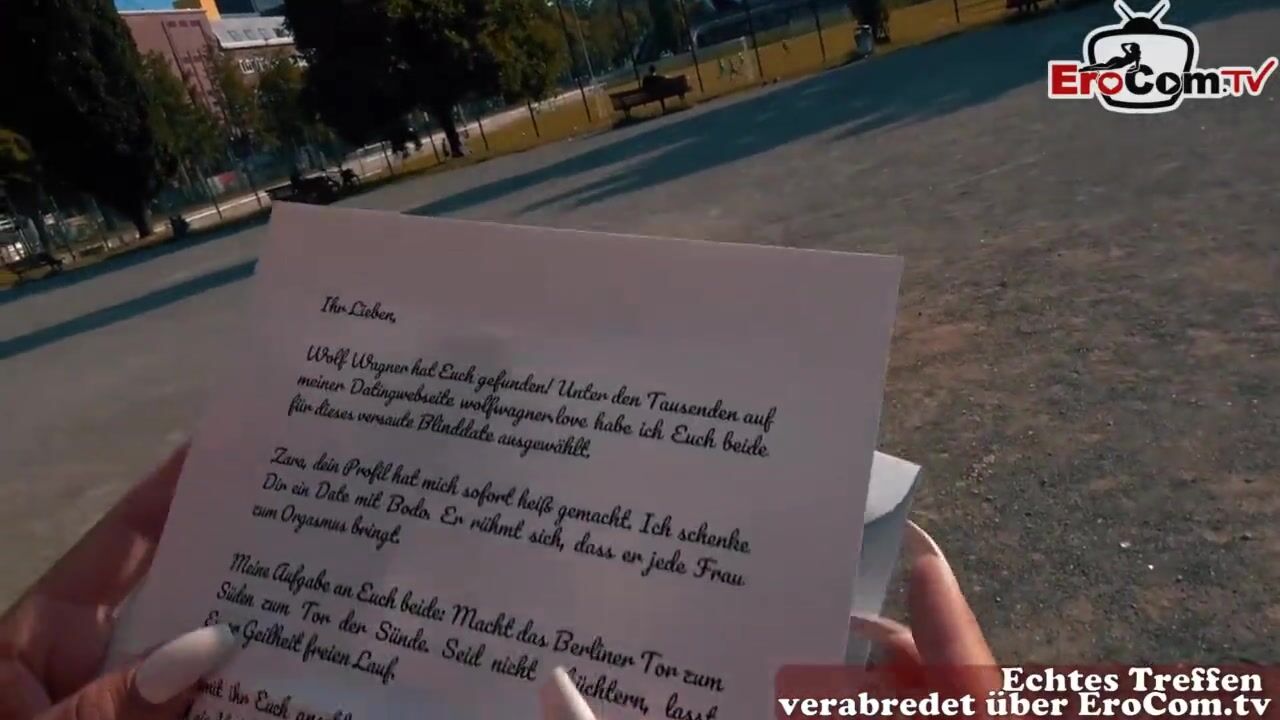 EroCom.TV
Ihr Lieben,
Wolf Wagner hat Euch gefunden! Unter den Tausenden auf
meiner Datingwebseite wolfwagner.love habe ich Euch beide
für dieses versaute Blinddate ausgewählt.
Zara, dein Profil hat mich sofort heiß gemacht. Ich schenke
Dir ein Date mit Bodo. Er rühmt sich, dass er jede Frau
zum Orgasmus bringt.
Meine Aufgabe an Euch beide: Macht das Berliner Tor zum
Süden zum Tor der Sünde. Seid nicht lasst
Geilheit freien Lauf.
mit ihr Euch
Echtes Treffen
verabredet über EroCom.tv